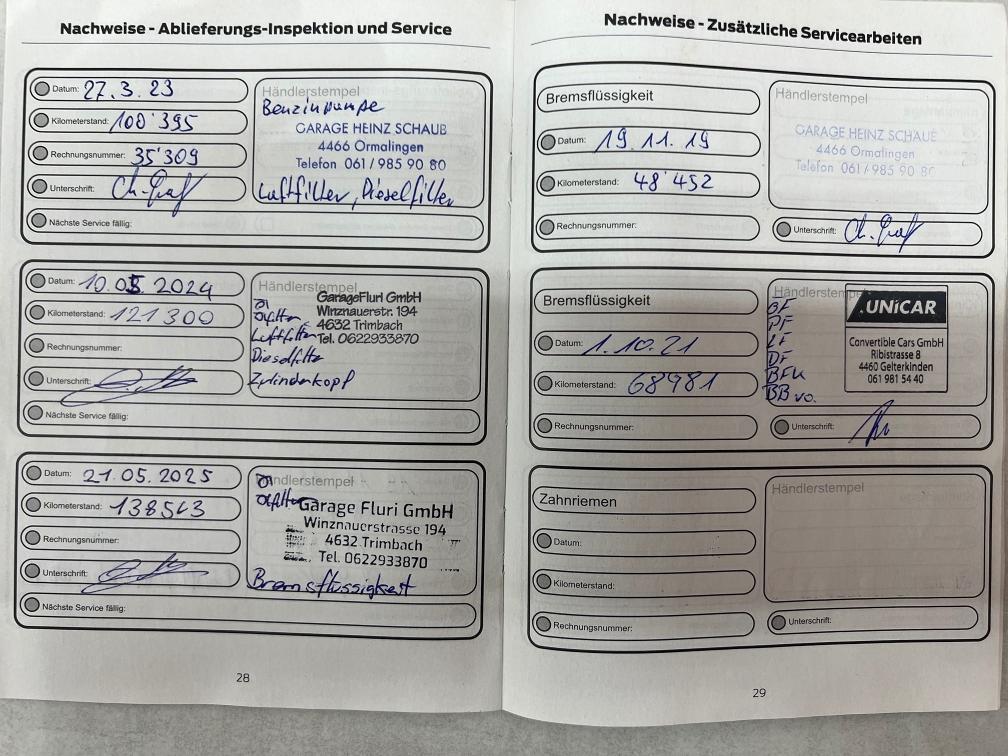 Nachweise - Ablieferungs-Inspektion und Service
Datum: 27.3.23
Kilometerstand: 100'395
Rechnungsnummer: 35'309
Unterschrift: Ch. Graf
Nächste Service fällig:
Händlerstempel
Benzinpumpe
GARAGE HEINZ SCHAUB
4466 Ormalingen
Telefon 061 / 985 90 80
Luftfilter, Dieselfilter
Datum: 10.05.2024
Kilometerstand: 121300
Rechnungsnummer:
Unterschrift:
Nächste Service fällig:
Händlerstempel
Öl GarageFluri GmbH
Ölfilter Winznauerstr. 194
Luftfilter 4632 Trimbach
Tel. 0622933870
Dieselfilter
Zylinderkopf
Datum: 21.05.2025
Kilometerstand: 138513
Rechnungsnummer:
Unterschrift:
Nächste Service fällig:
Händlerstempel
Öl
Ölfilter Garage Fluri GmbH
Winznauerstrasse 194
4632 Trimbach
Tel. 0622933870
Bremsflüssigkeit
28
Nachweise - Zusätzliche Servicearbeiten
Bremsflüssigkeit
Datum: 19.11.19
Kilometerstand: 48'452
Rechnungsnummer:
Händlerstempel
GARAGE HEINZ SCHAUB
4466 Ormalingen
Telefon 061 / 985 90 80
Unterschrift: Ch. Graf
Bremsflüssigkeit
Datum: 1.10.21
Kilometerstand: 68981
Rechnungsnummer:
Händlerstempel
PF
LF
DF
BFK
BB vo.
UNiCAR
Convertible Cars GmbH
Ribistrasse 8
4460 Gelterkinden
061 981 54 40
Unterschrift:
Zahnriemen
Datum:
Kilometerstand:
Rechnungsnummer:
Händlerstempel
Unterschrift:
29